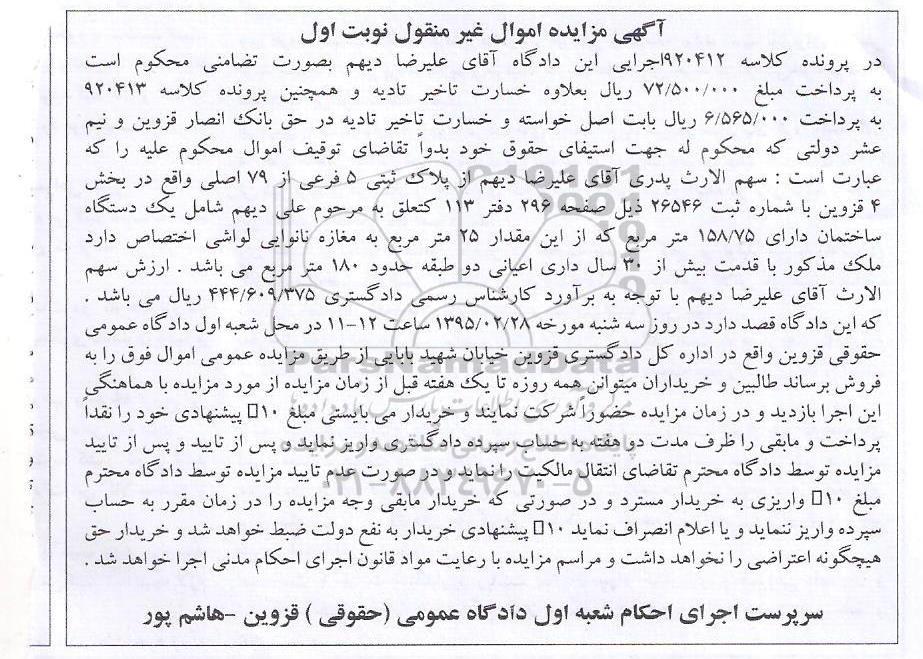 آگهی مزایده اموال غیر منقول نوبت اول
در پرونده کلاسه ۹۲۰۴۱۲اجرایی این دادگاه آقای علیرضا دیهم بصورت تضامنی محکوم است
به پرداخت مبلغ ۷۲/۵۰۰/۰۰۰ ریال بعلاوه خسارت تاخیر تادیه و همچنین پرونده کلاسه ۹۲۰۴۱۳
به پرداخت ۶/۵۶۵/۰۰۰ ریال بابت اصل خواسته و خسارت تاخیر تادیه در حق بانک انصار قزوین و نیم
عشر دولتی که محکوم له جهت استیفای حقوق خود بدواً تقاضای توقیف اموال محکوم علیه را که
عبارت است : سهم الارث پدری آقای علیرضا دیهم از پلاک ثبتی ۵ فرعی از ۷۹ اصلی واقع در بخش
۴ قزوین با شماره ثبت ۲۶۵۴۶ ذیل صفحه ۲۹۶ دفتر ۱۱۳ کتعلق به مرحوم علی دیهم شامل یک دستگاه
ساختمان دارای ۱۵۸/۷۵ متر مربع که از این مقدار ۲۵ متر مربع به مغازه نانوایی لواشی اختصاص دارد
ملک مذکور با قدمت بیش از ۳۰ سال داری اعیانی دو طبقه حدود ۱۸۰ متر مربع می باشد . ارزش سهم
الارث آقای علیرضا دیهم با توجه به برآورد کارشناس رسمی دادگستری ۴۴۴/۶۰۹/۳۷۵ ریال می باشد .
که این دادگاه قصد دارد در روز سه شنبه مورخه ۱۳۹۵/۰۲/۲۸ ساعت ۱۲-۱۱ در محل شعبه اول دادگاه عمومی
حقوقی قزوین واقع در اداره کل دادگستری قزوین خیابان شهید بابایی از طریق مزایده عمومی اموال فوق را به
فروش برساند طالبین و خریداران میتوانن همه روزه تا یک هفته قبل از زمان مزایده از مورد مزایده با هماهنگی
این اجرا بازدید و در زمان مزایده حضوراً شرکت نمایند و خریدار می بایستی مبلغ ۱۰□ پیشنهادی خود را نقداً
پرداخت و مابقی را ظرف مدت دو هفته به حساب سپرده دادگستری واریز نماید و پس از تایید و پس از تایید
مزایده توسط دادگاه محترم تقاضای انتقال مالکیت را نماید و در صورت عدم تایید مزایده توسط دادگاه محترم
مبلغ ۱۰□ واریزی به خریدار مسترد و در صورتی که خریدار مابقی وجه مزایده را در زمان مقرر به حساب
سپرده واریز ننماید و یا اعلام انصراف نماید ۱۰□ پیشنهادی خریدار به نفع دولت ضبط خواهد شد و خریدار حق
هیچگونه اعتراضی را نخواهد داشت و مراسم مزایده با رعایت مواد قانون اجرای احکام مدنی اجرا خواهد شد .
سرپرست اجرای احکام شعبه اول دادگاه عمومی (حقوقی ) قزوین -هاشم پور
ParsNamadData
۰۲۱-۸۸۳۴۹۶۷۰-۵